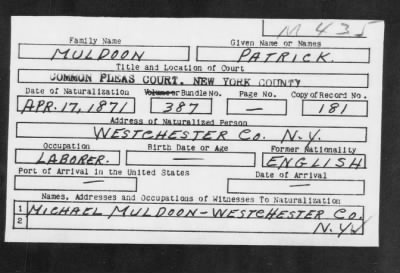 M 435
Family Name Given Name or Names
MULDOON PATRICK.
Title and Location of Court
COMMON PLEAS COURT, NEW YORK COUNTY
Date of Naturalization Volume or Bundle No. Page No. Copy of Record No.
APR. 17, 1871 387 — 181
Address of Naturalized Person
WESTCHESTER CO. N.Y.
Occupation Birth Date or Age Former Nationality
LABORER. — ENGLISH
Port of Arrival in the United States Date of Arrival
— —
Names, Addresses and Occupations of Witnesses To Naturalization
1 MICHAEL MULDOON - WESTCHESTER CO.
2 N.Y.